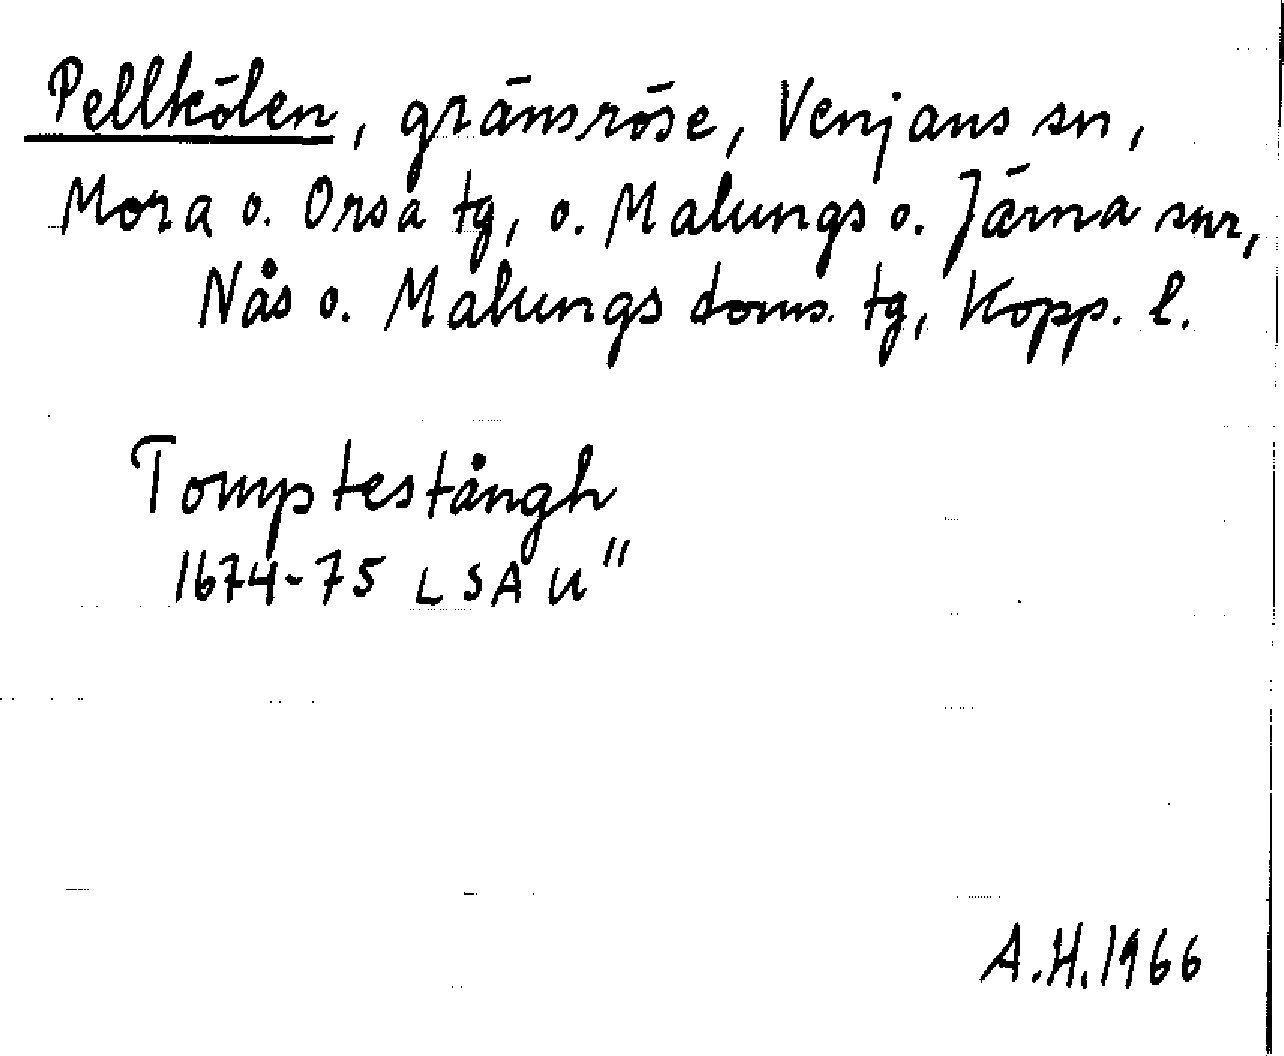 Pellkölen, gränsröse, Venjans sn,
Mora o. Orsa tg, o. Malungs o. Järna snr,
Nås o. Malungs doms. tg, Kopp. l.
Tomptestångh
1674-75 LSA U"
A.H.1966